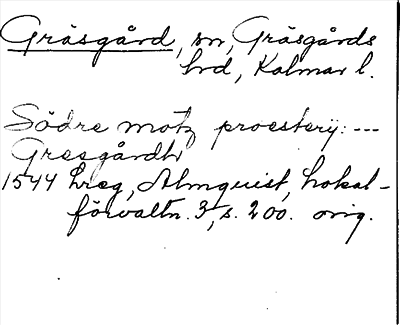 Gräsgård, sn, Gräsgårds
hrd, Kalmar l.
Södre motz proestery: ---
Gresgårdh
1544 hreg, Almquist, Lokal-
förvaltn. 3, s. 200. orig.